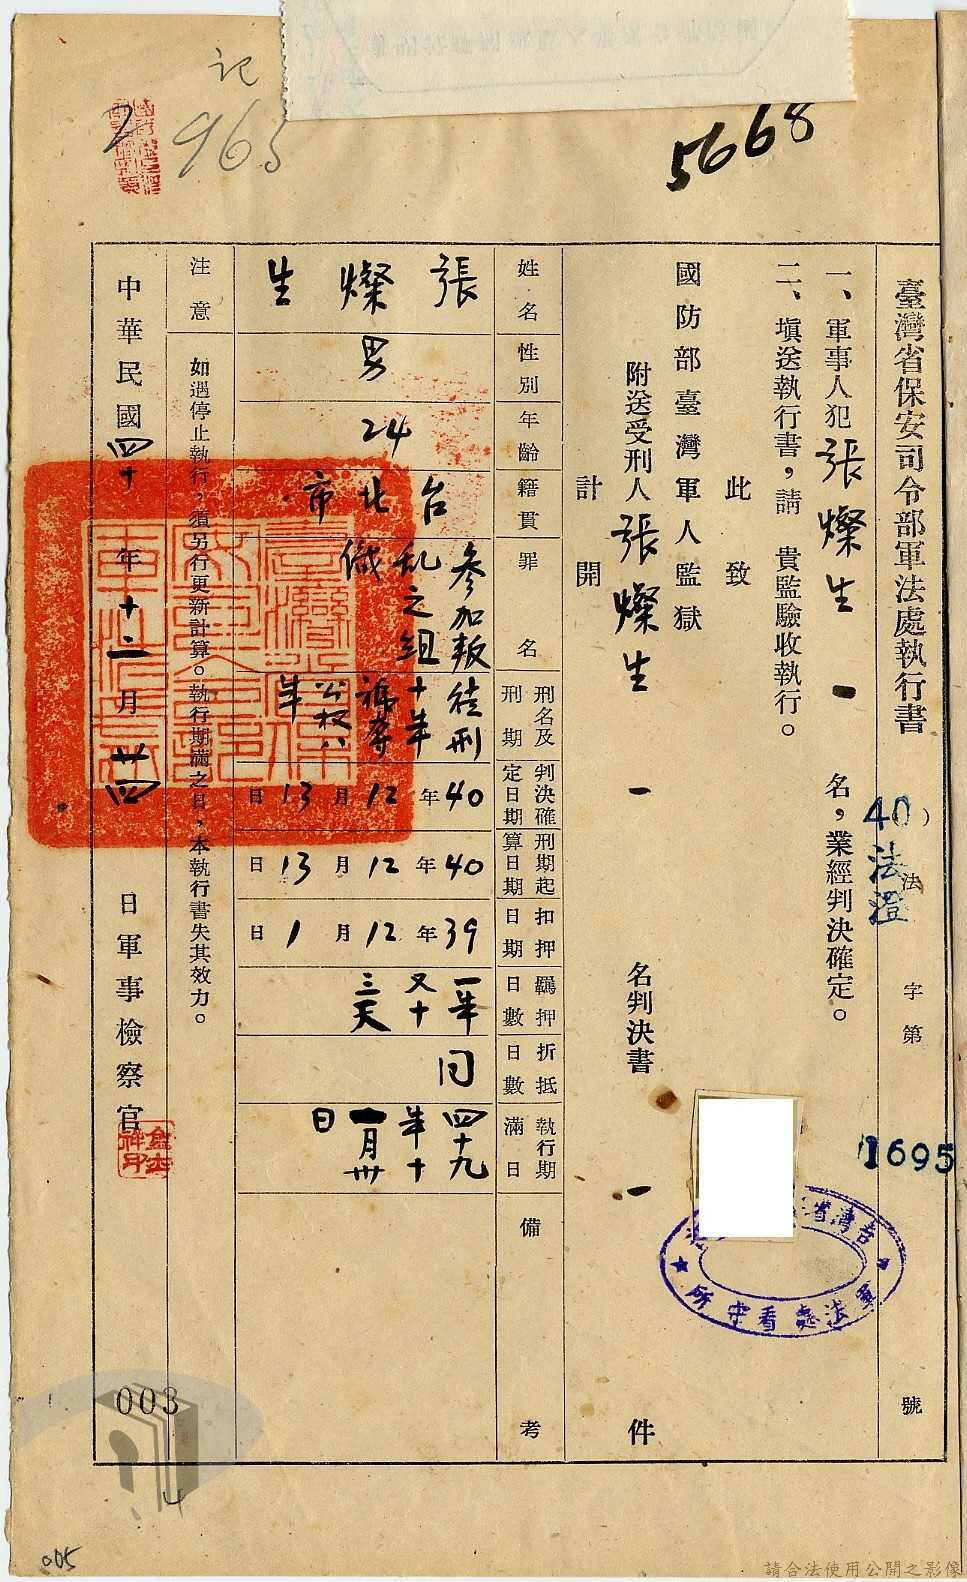 記
2
965
5668
臺灣省保安司令部軍法處執行書
40）法澄法字第11695號
一、軍事人犯張燦生一名，業經判決確定。
二、填送執行書，請　貴監驗收執行。
此致
國防部臺灣軍人監獄
附送受刑人張燦生一名判決書一件
計開
姓名 張燦生
性別 男
年齡 24
籍貫 台北市
罪名 參加叛乱之組織
刑名及刑期 徒刑十年褫奪公权八年
判決確定日期 40年12月13日
刑期起算日期 40年12月13日
扣押日期 39年12月1日
羈押日數 一年又十三天
折抵日數 同
執行期滿日 四十九年十一月卅日
備考
注意 如遇停止執行，須另行更新計算。執行期滿之日，本執行書失其效力。
中華民國四十年十二月廿四日軍事檢察官
軍法處看守所
003
4
005
請合法使用公開之影像